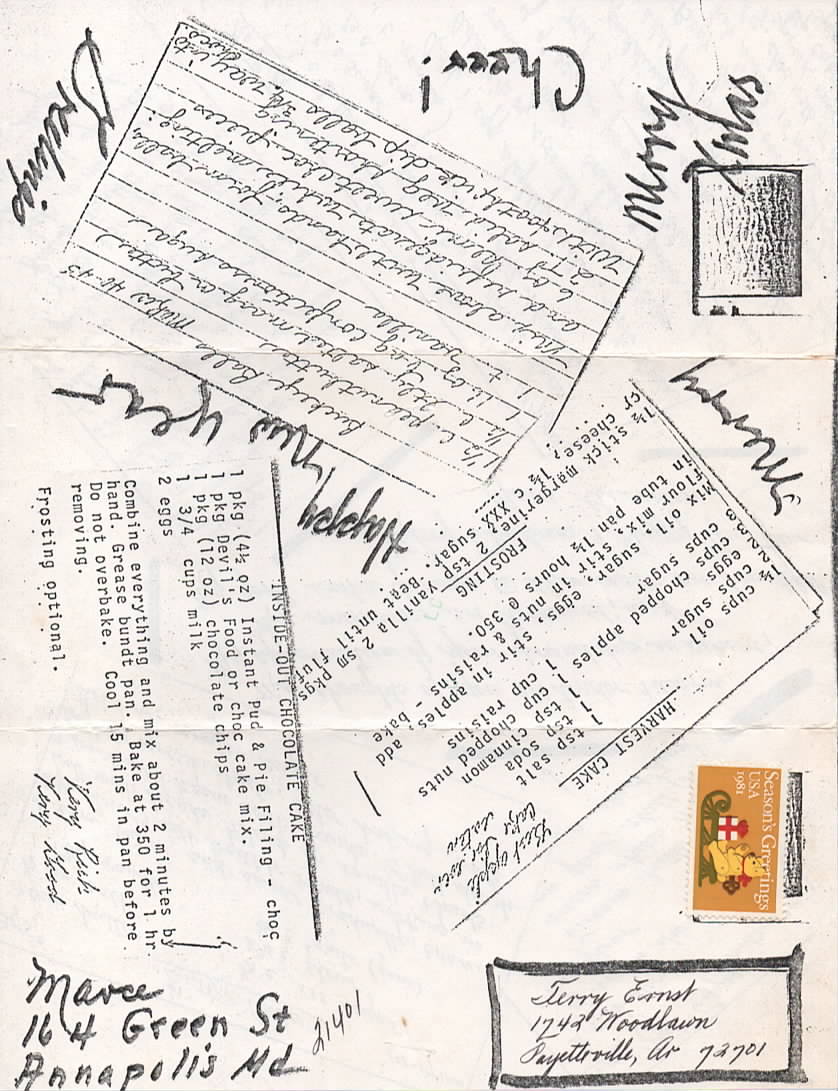 Merry
Xmas
Cheer!
Greetings
Buckeye Balls makes 40-45
1½ c peanut butter
½ c salted marg or butter
1 lb or bag confectioners sugar
1 t vanilla
Mix above with hands, form balls,
and refrigerate while melting:
6 oz semi sweet choc pieces
With toothpick dip balls ¾ way into
choc.
Happy New Year
Merry
HARVEST CAKE
Best apple
cake I've ever
eaten
1½ cups oil 1 tsp salt
2 cups sugar 1 tsp soda
eggs 1 tsp cinnamon
cups 1 cup chopped nuts
cups chopped apples 1 cup raisins
Mix oil, sugar, eggs, stir in apples, add
flour mix, stir in nuts & raisins - bake
in tube pan 1½ hours @ 350.
FROSTING
1½ stick margerine, 2 tsp vanilla 2 sm pkgs
cr cheese, 1½ c XXX sugar. Beat until fluffy
INSIDE-OUT CHOCOLATE CAKE
1 pkg (4½ oz) Instant Pud & Pie Filing - choc
1 pkg Devil's Food or choc cake mix.
1 pkg (12 oz) chocolate chips
1 3/4 cups milk
2 eggs
Combine everything and mix about 2 minutes by
hand. Grease bundt pan. Bake at 350 for 1 hr.
Do not overbake. Cool 15 mins in pan before
removing.
Frosting optional.
Very Rich
Very Good
Season's Greetings
USA
1981
Marce
164 Green St
Annapolis Md
21401
Terry Ernst
1742 Woodlawn
Fayetteville, Ar 72701